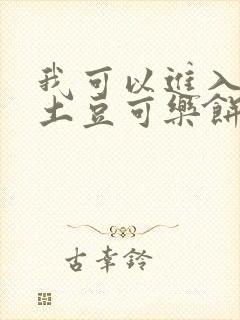 我可以进入
土豆可樂餅
古幸鈴